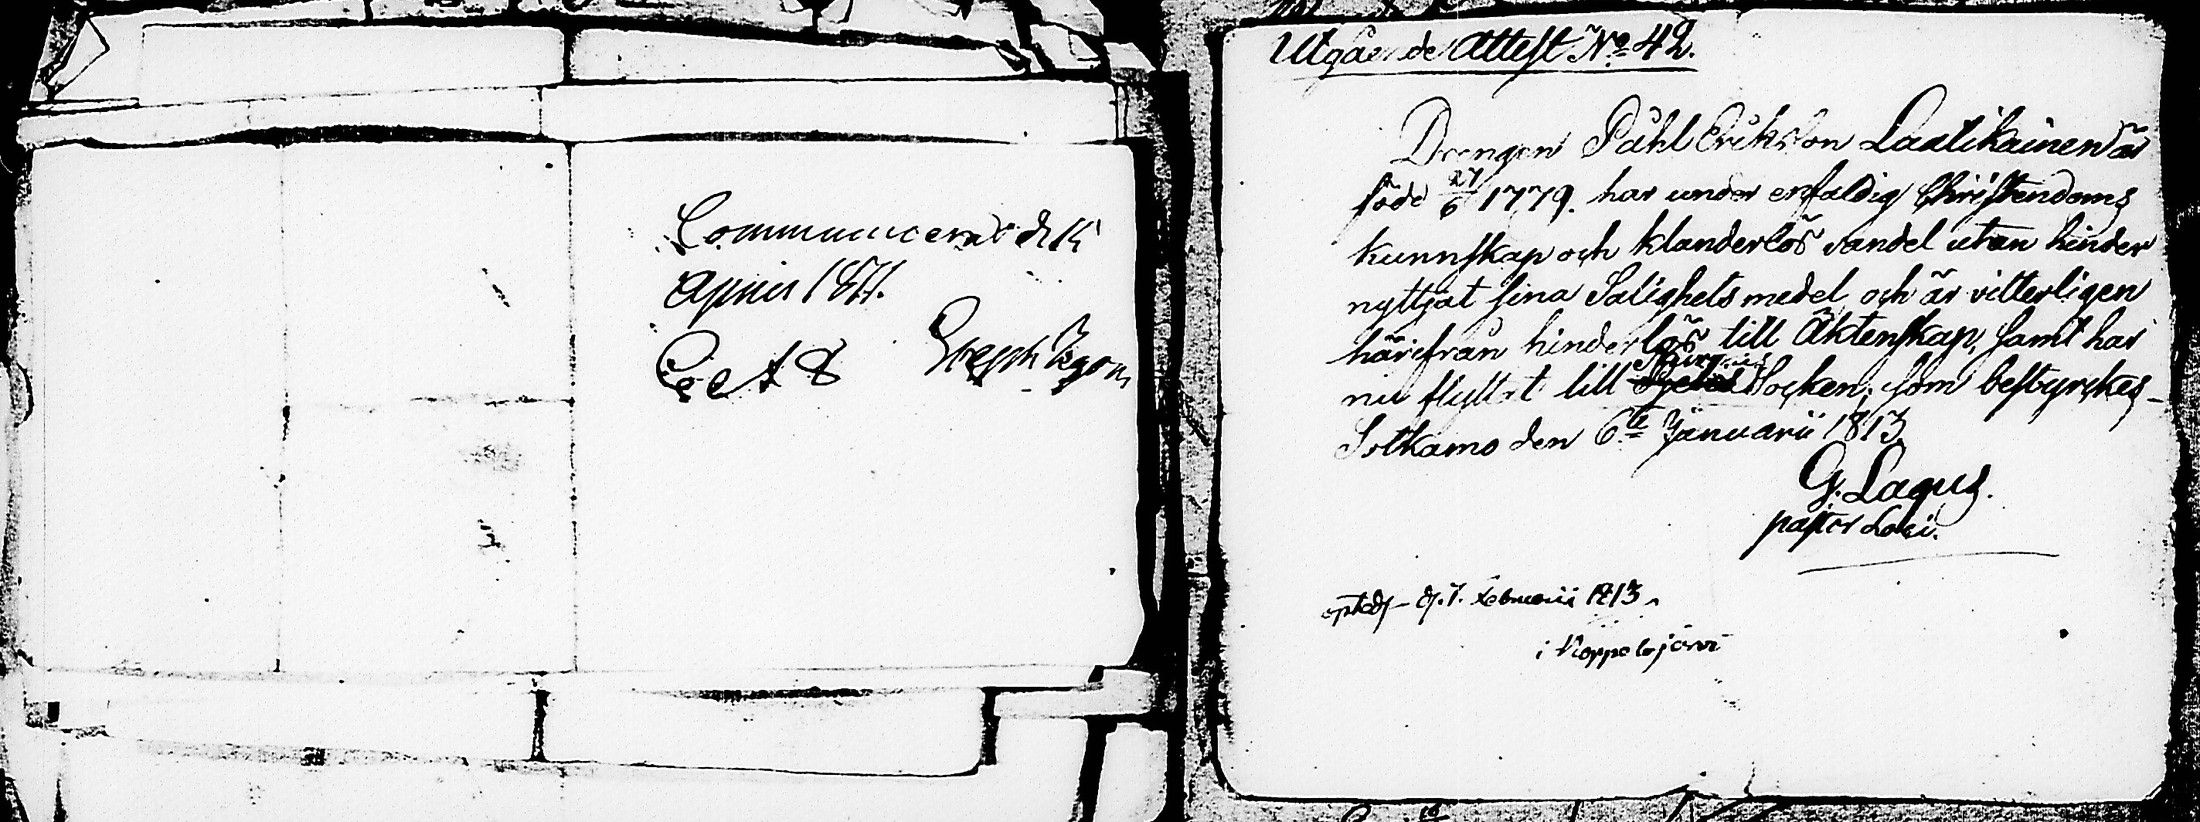 Communicerat d. 15
April 1871.
Utgående Attest No 42.
Drengen Påhl Erikson Laatikainen är
föde 27/6 1779. har under enfaldig Christendoms
kunnskap och klanderlös vandel utan hinder
nyttjat sina Salighets medel, och är vitterligen
härifrån hinderlös till Äktenskap, samt har
nu flyttat till Socken, som bestyrckes_
Sotkamo den 6te Januarii 1813
G. Lagus.
pastor Loci.
d. 7. Februarii 1813
i